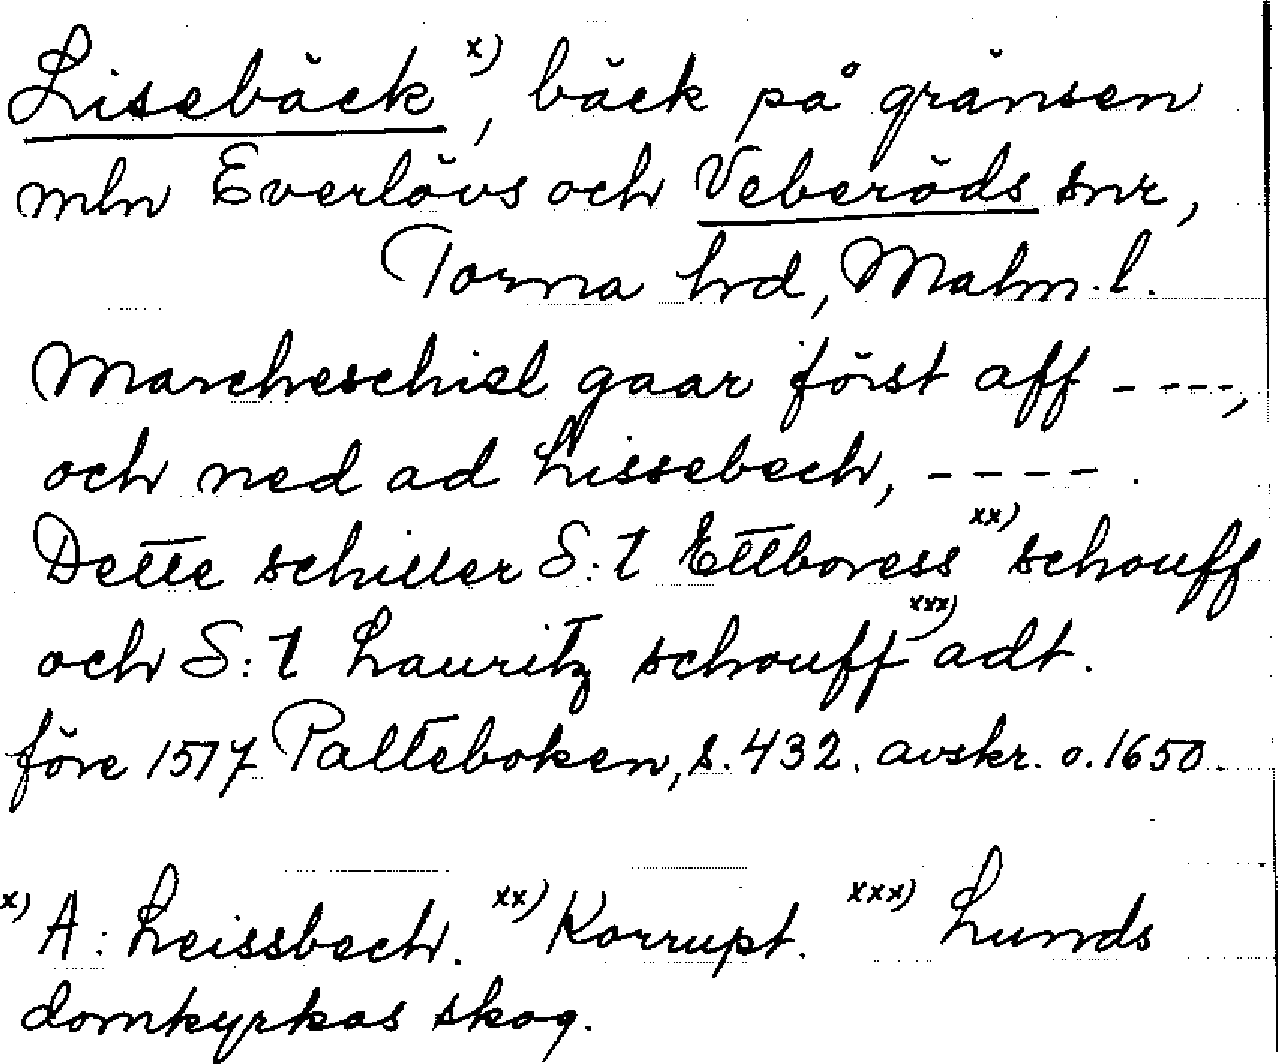 Lisebäck x), bäck på gränsen
mln Everlövs och Veberöds snr,
Torna hrd, Malm. l.
Marcheschiel gaar först aff - ---,
och ned ad Lissebech, - - - - .
Dette schiller S:t Ettboress xx) schouff
och S:t Lauritz schouff xxx) adt.
före 1517 Palteboken, s. 432. avskr. o. 1650.
x) A: Leissbech. xx) Korrupt. xxx) Lunds
domkyrkas skog.